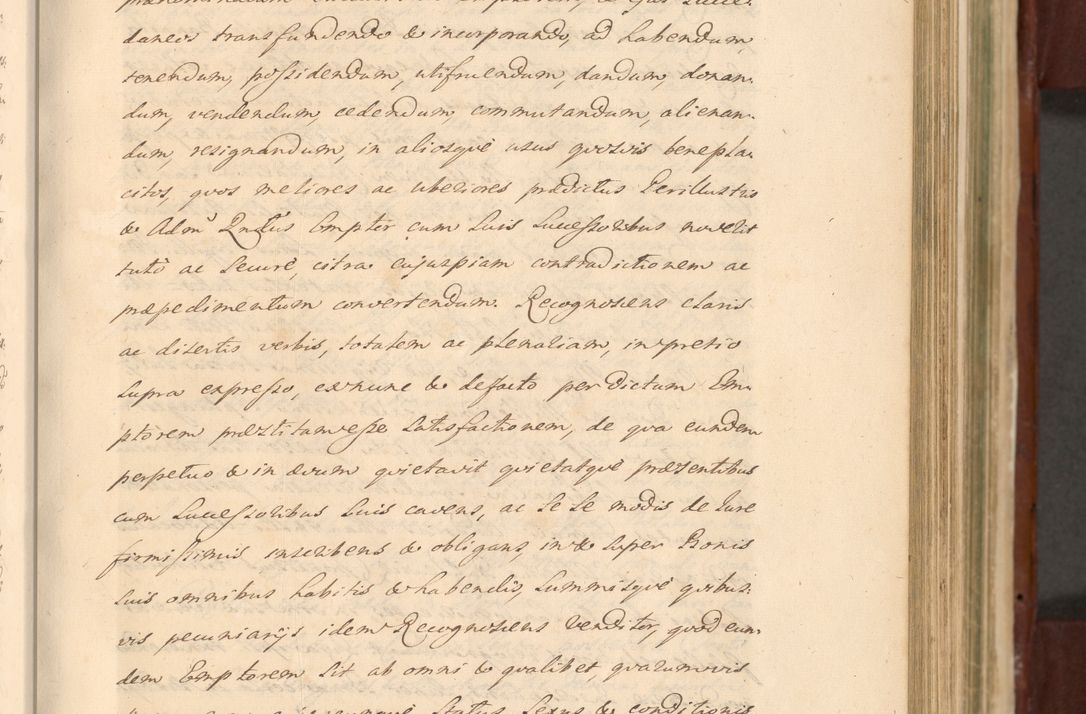 daneos transfundendo & incorporando, ad habendum,
tenendum, possidendum, utifruendum, dandum, donan-
dum, vendendum, cedendum, commutandum, alienan-
dum, resignandum, in aliosquè usus quosvis benepla-
citos, quos meliores ac uberiores prædictus Perillustris
& Adm̃ Rndus Emptor cum suis successoribus noverit
tutò ac securè, citra cujuspiam contradictionem ac
præpedimentum convertendum. Recognoscens claris
ac disertis verbis, totalem ac plenariam, in pretio
supra expresso, ex nunc & defacto per dictum Em-
ptorem præstitam esse satisfactionem, de qua eundem
perpetuo & in ævum quietavit quietatquè præsentibus
cum successoribus suis cavens, ac se se modis de Iure
firmissimis inscribens & obligans, in & super Bonis
suis omnibus habitis & habendis, summisquè quibus-
vis pecuniarijs idem Recognoscens Venditor, quod eun-
dem Emptorem sit ab omni & qualibet, quarumvis
Status Sexus & conditionis